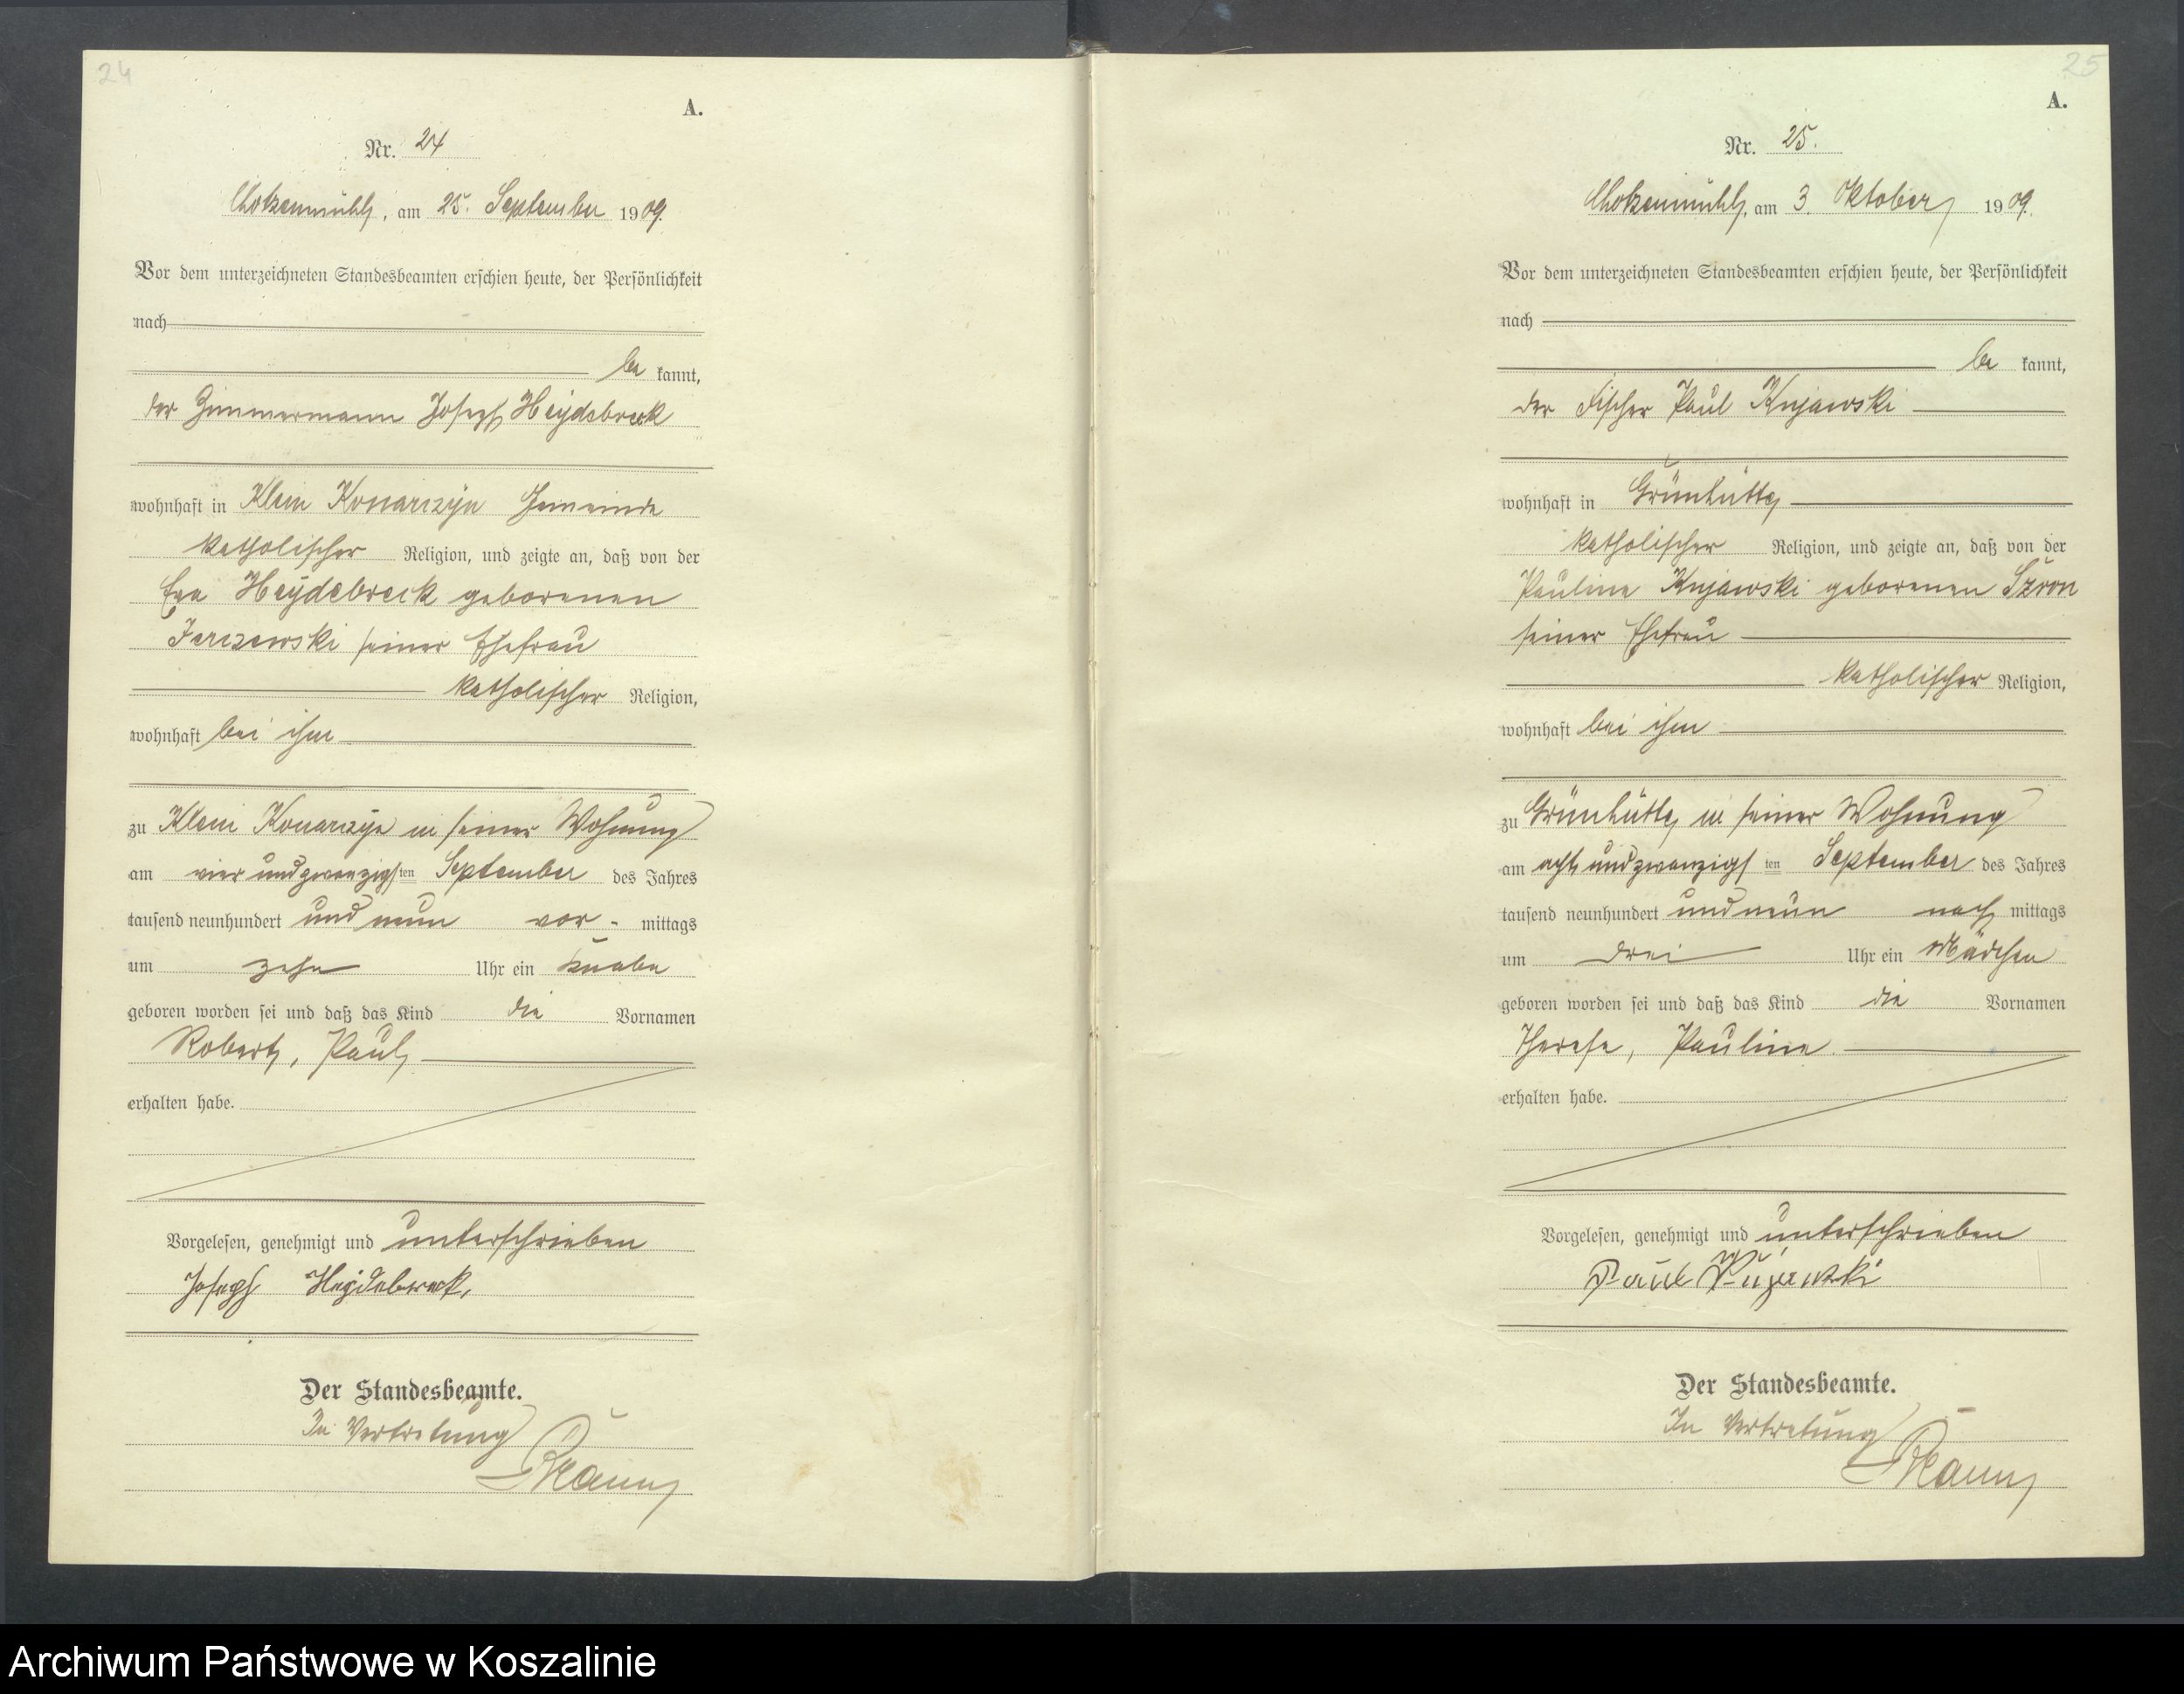 24
A.
Nr. 24
Chotzenmühl, am 25. September 1909.
Vor dem unterzeichneten Standesbeamten erschien heute, der Persönlichkeit
nach
be kannt,
der Zimmermann Joseph Heydebreck
wohnhaft in Klein Konarczyn Gemeinde
katholischer Religion, und zeigte an, daß von der
Eva Heydebreck geborenen
Jerszewski seiner Ehefrau
katholischer Religion,
wohnhaft bei ihm
zu Klein Konarczyn in seiner Wohnung
am vier und zwanzigsten September des Jahres
tausend neunhundert und neun vor - mittags
um zehn Uhr ein Knabe
geboren worden sei und daß das Kind die Vornamen
Robert, Paul
erhalten habe.
Vorgelesen, genehmigt und unterschrieben
Joseph Heydebreck.
Der Standesbeamte.
In Vertretung
25
A.
Nr. 25.
Chotzenmühl, am 3. Oktober 1909.
Vor dem unterzeichneten Standesbeamten erschien heute, der Persönlichkeit
nach
be kannt,
der Fischer Paul Kujawski
wohnhaft in Grünhütte
katholischer Religion, und zeigte an, daß von der
Pauline Kujawski geborenen Szron
seiner Ehefrau
katholischer Religion,
wohnhaft bei ihm
zu Grünhütte in seiner Wohnung
am acht und zwanzigsten September des Jahres
tausend neunhundert und neun nach mittags
um drei Uhr ein Mädchen
geboren worden sei und daß das Kind die Vornamen
Therese, Pauline.
erhalten habe.
Vorgelesen, genehmigt und unterschrieben
Paul Kujawski
Der Standesbeamte.
In Vertretung
Archiwum Państwowe w Koszalinie